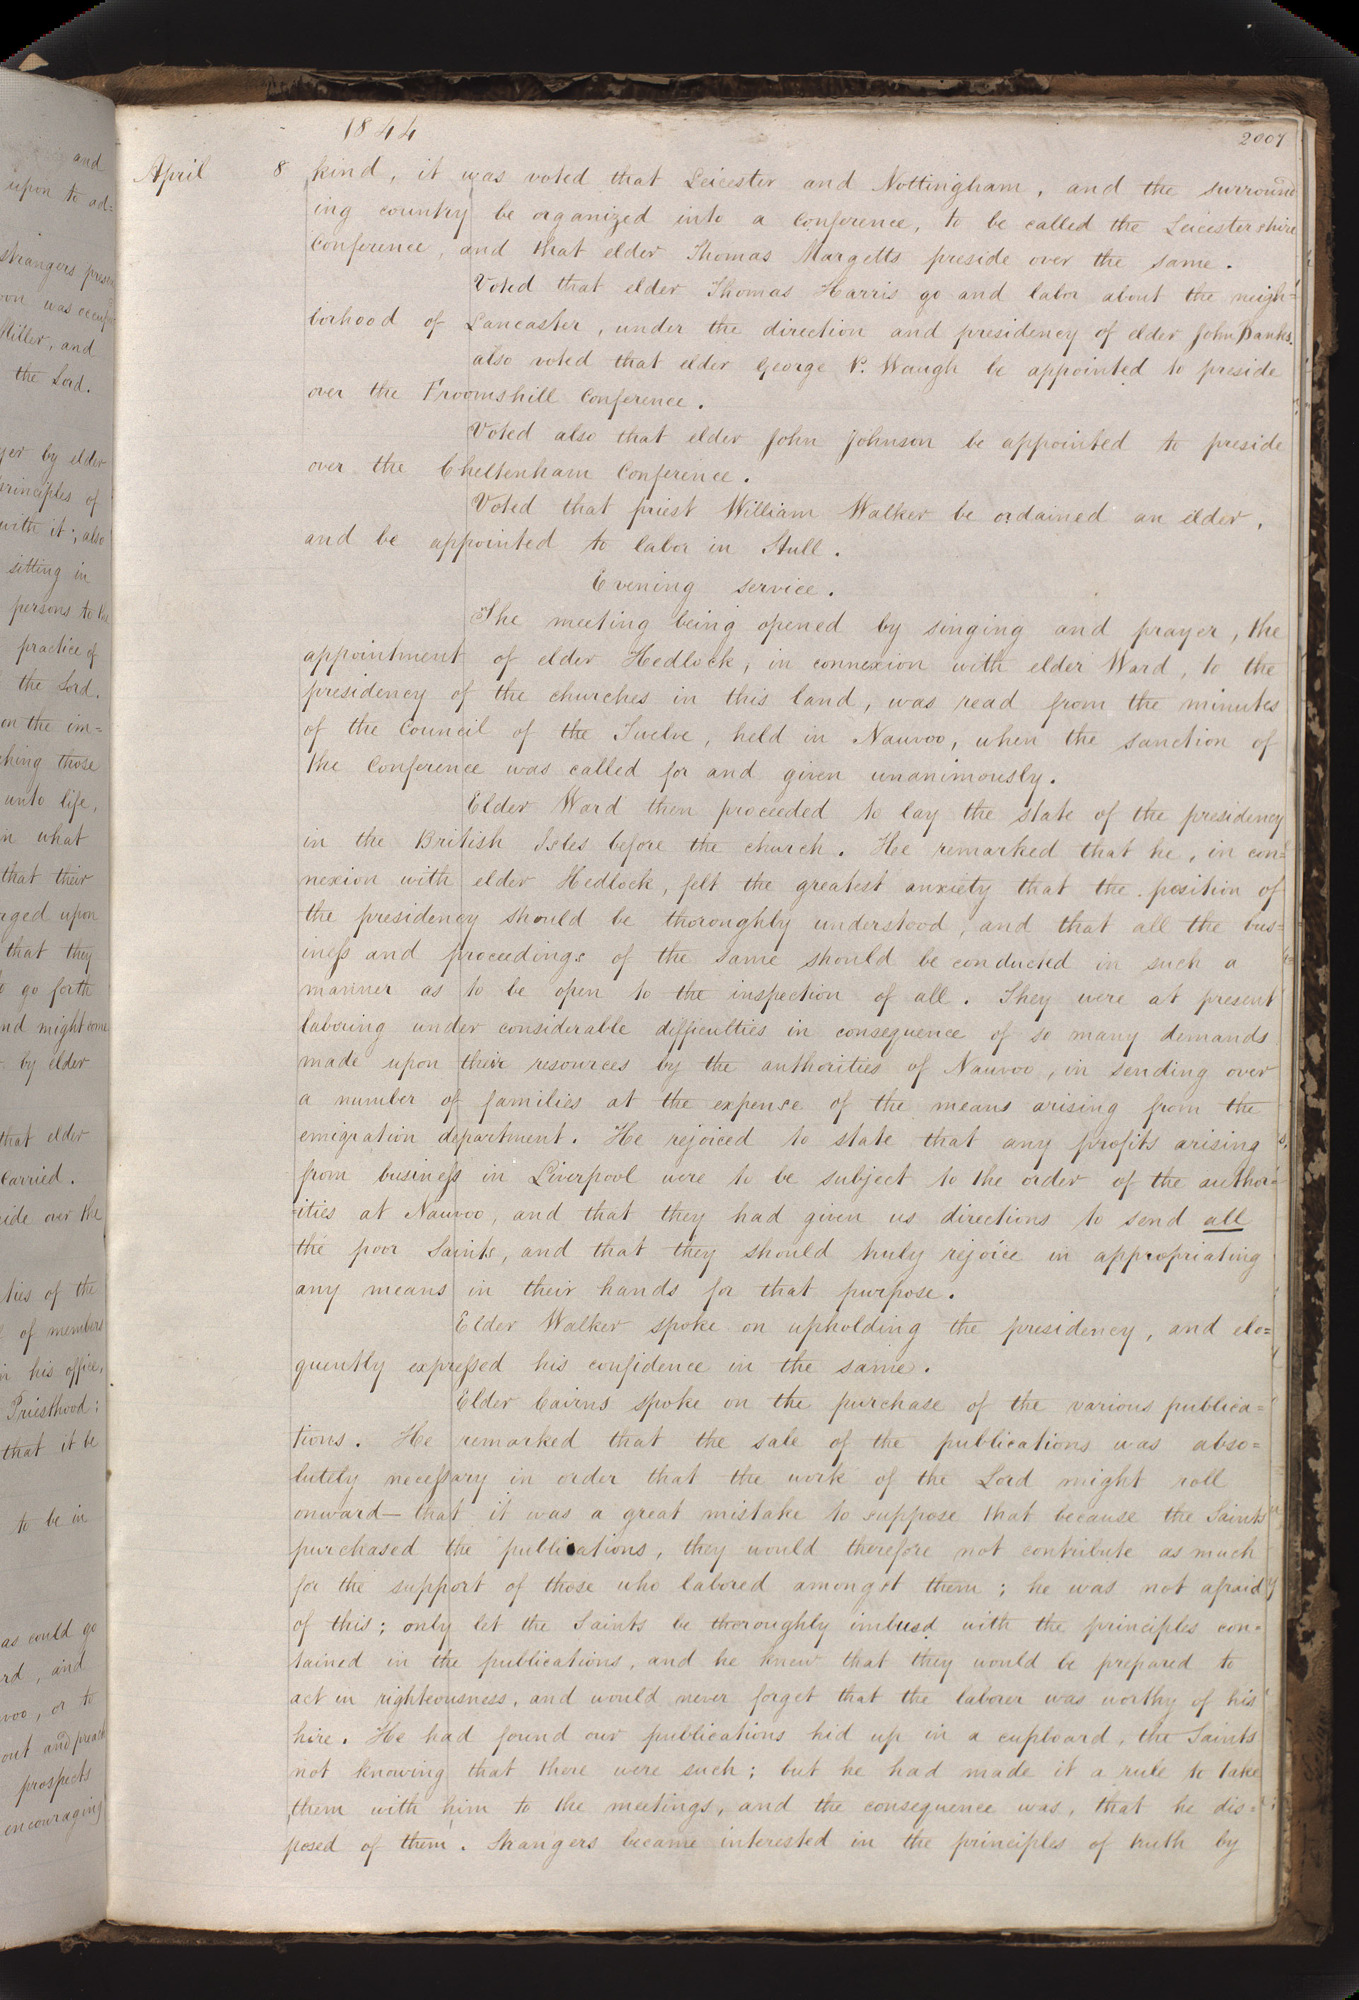 1844
2007
April 8 kind, it was voted that Leicester and Nottingham, and the surround
ing country be organized into a conference, to be called the Leicestershire
Conference, and that elder Thomas Margetts preside over the same.
Voted that elder Thomas Harris go and labor about the neigh=
borhood of Lancaster, under the direction and presidency of elder John Banks.
also voted that elder George P. Waugh be appointed to preside
over the Froomshill Conference.
Voted also that elder John Johnson be appointed to preside
over the Cheltenham Conference.
Voted that priest William Walker be ordained an elder,
and be appointed to labor in Hull.
Evening service.
The meeting being opened by singing and prayer, the
appointment of elder Hedlock, in connexion with elder Ward, to the
presidency of the churches in this land, was read from the minutes
of the Council of the Twelve, held in Nauvoo, when the sanction of
the Conference was called for and given unanimously.
Elder Ward then proceeded to lay the state of the presidency
in the British Isles before the church. He remarked that he, in con=
nexion with elder Hedlock, felt the greatest anxiety that the position of
the presidency should be thoroughly understood, and that all the bus=
iness and proceedings of the same should be conducted in such a
manner as to be open to the inspection of all. They were at present
laboring under considerable difficulties in consequence of so many demands
made upon their resources by the authorities of Nauvoo, in sending over
a number of families at the expense of the means arising from the
emigration department. He rejoiced to state that any profits arising
from business in Liverpool were to be subject to the order of the author=
=ities at Nauvoo, and that they had given us directions to send all
the poor Saints, and that they should truly rejoice in appropriating
any means in their hands for that purpose.
Elder Walker spoke on upholding the presidency, and elo=
quently expressed his confidence in the same.
Elder Cairns spoke on the purchase of the various publica=
tions. He remarked that the sale of the publications was abso=
lutely necessary in order that the work of the Lord might roll
onward— that it was a great mistake to suppose that because the Saints
purchased the publications, they would therefore not contribute as much
for the support of those who labored amongst them; he was not afraid
of this; only let the Saints be thoroughly imbued with the principles con=
tained in the publications, and he knew that they would be prepared to
act in righteousness, and would never forget that the laborer was worthy of his
hire. He had found our publications hid up in a cupboard, the Saints
not knowing that there were such; but he had made it a rule to take
them with him to the meetings, and the consequence was, that he dis=
posed of them. Strangers became interested in the principles of truth by
and
upon to ad=
strangers presen
oon was occupi
Miller, and
the Lord.
yer by elder
principles of
with it; also
sitting in
persons to the
practice of
the Lord.
on the im=
ching those
unto life,
in what
that their
aged upon
that they
to go forth
nd might come
by elder
that elder
carried.
side over the
ties of the
of members
in his office,
Priesthood:
that it be
to be in
as could go
rd, and
voo, or to
out and preach
prospects
encouraging